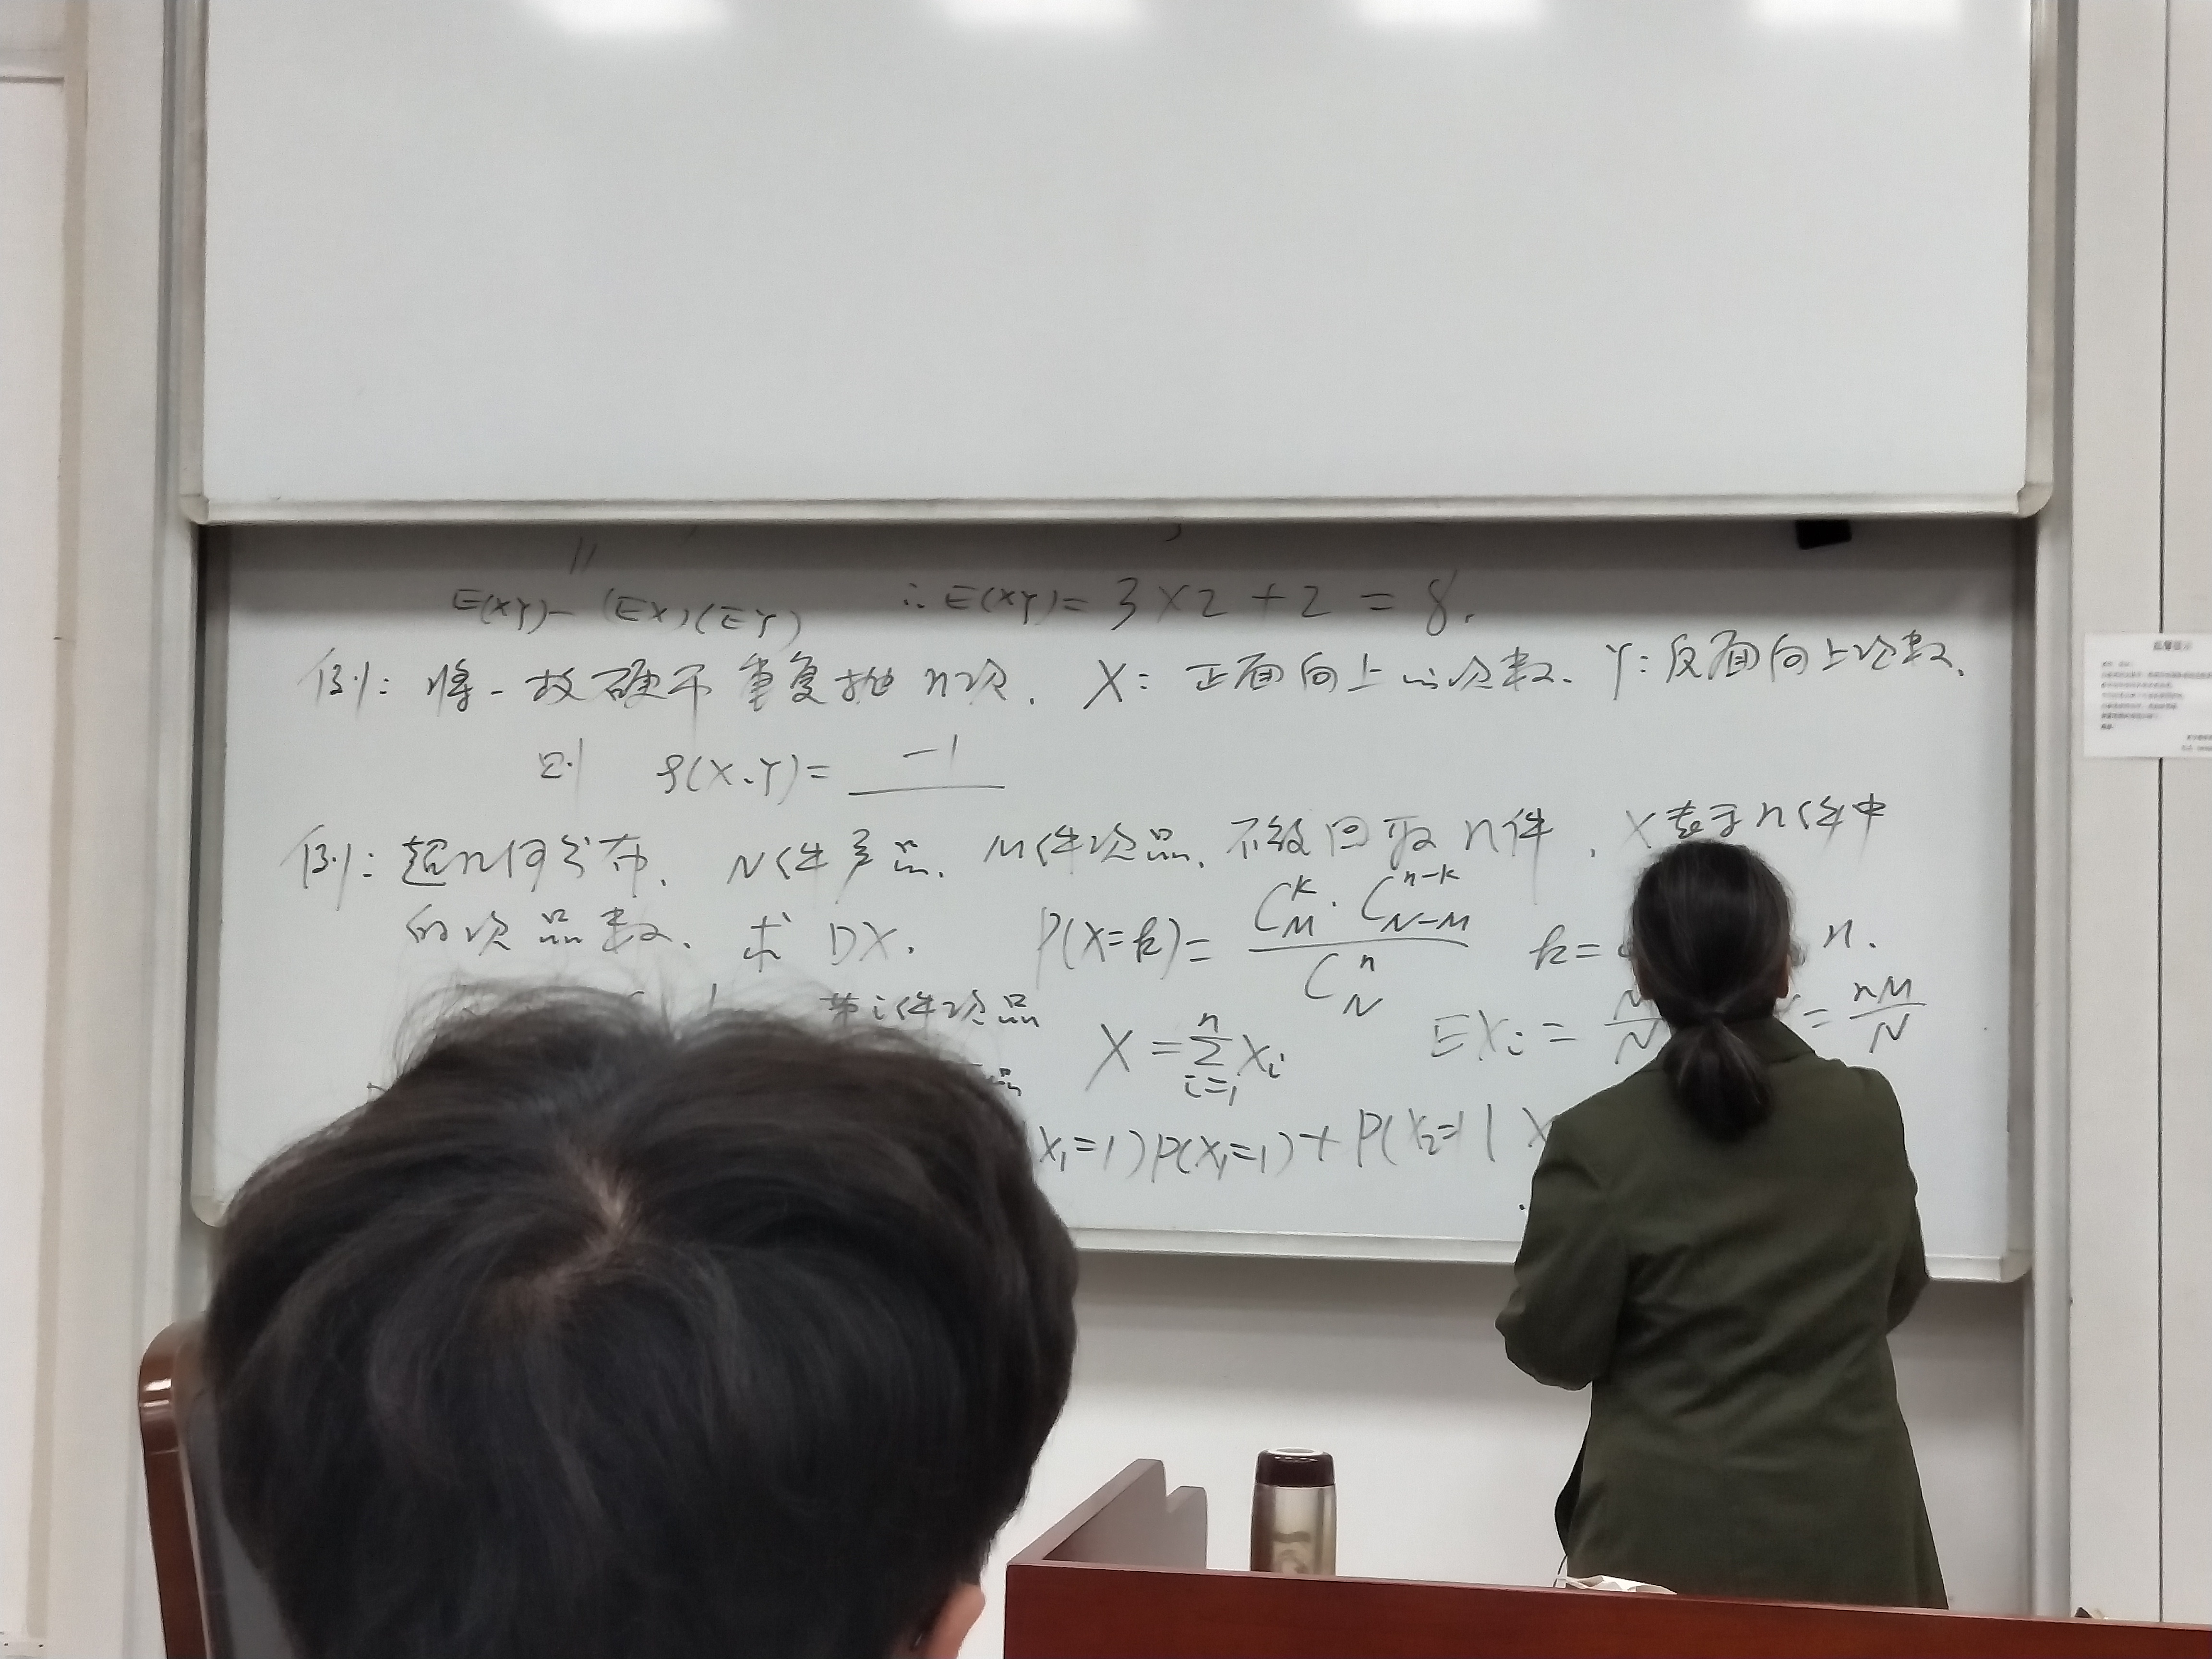 E(XY)-(EX)(EY) ∴ E(XY)= 3×2+2 = 8.
例: 将一枚硬币重复抛n次. X: 正面向上的次数. Y: 反面向上次数.
则 ρ(X,Y)= -1
例: 超几何分布. N件产品. M件次品. 不放回取n件. X表示n件中
的次品数. 求 DX. P(X=k)= C_M^k · C_{N-M}^{n-k} / C_N^n k= n.
第i件次品 X = Σ_{i=1}^n X_i EX_i = M/N = nM/N
品
X_1=1)P(X_1=1)+P(X_2=1|X